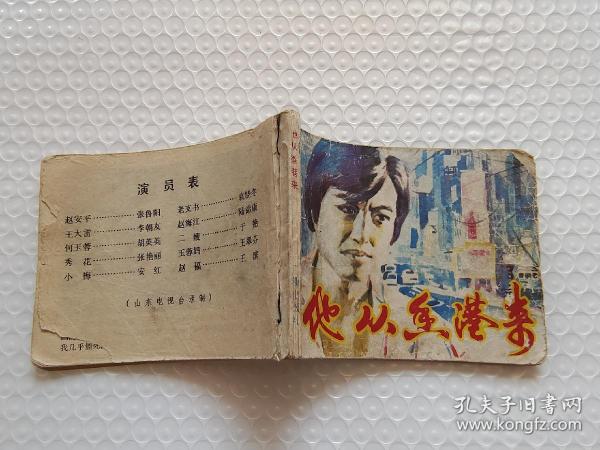 演员表
赵安平……张鲁阳 老支书……袁楚冬
王大雷……李朝友 赵海江……陆诣康
何玉蓉……胡英英 二嫂……于艳
秀花……张艳丽 玉蓉妈……王翠芬
小梅……安红 赵福……王滨
（山东电视台录制）
我几乎颓
他从香港来
他从香港来
孔夫子旧书网
www.kongfz.com